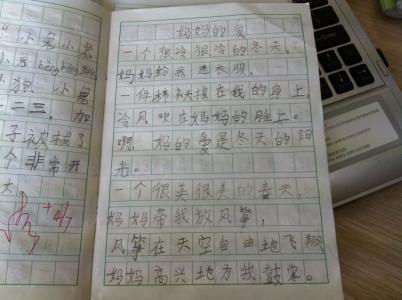 小兔小
小兔
小狗 小兔
二三。加
子被拔了
个非常开
妈妈的爱
一个很冷很冷的冬天,
妈妈给我送衣服,
一件 在我的身上,
冷风吹在妈妈的脸上。
啊,妈的爱是冬天的阳
光。
一个很美很美的春天,
妈妈带我放风筝,
风筝在天空自由地飞翔
妈妈高兴地为我鼓掌。